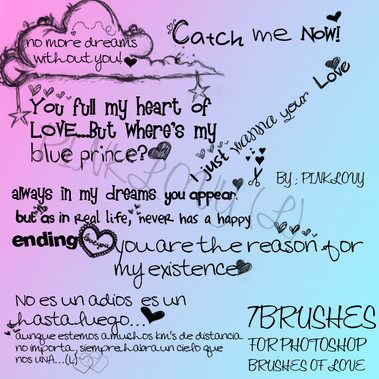 no more dreams
without you!
Catch me Now!
You full my heart of
LOVE...But where's my
blue prince?
I just wanna your Love
PINKLOVY (L)
BY ; PINKLOVY
always in my dreams you appear.
but as in real life, never has a happy
ending
you are the reason for
my existence
No es un adios es un
hasta luego...
aunque estemos a muchos km's de distancia
no importa, siempre habra un cielo que
nos UNA...(L)
7BRUSHES
FOR PHOTOSHOP
BRUSHES OF LOVE